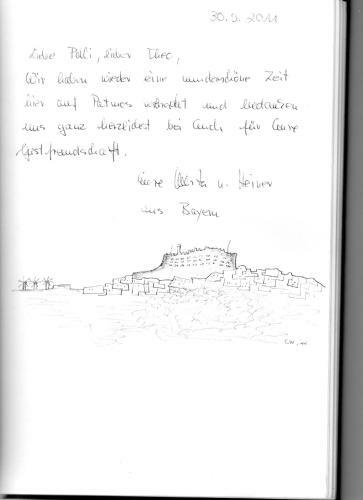 30.9.2011
Liebe Polli, lieber Theo,
Wir haben wieder eine wunderschöne Zeit
hier auf Patmos verbracht und bedanken
uns ganz herzlichst bei Euch für Eure
Gastfreundschaft.
Eure u. Heiner
aus Bayern